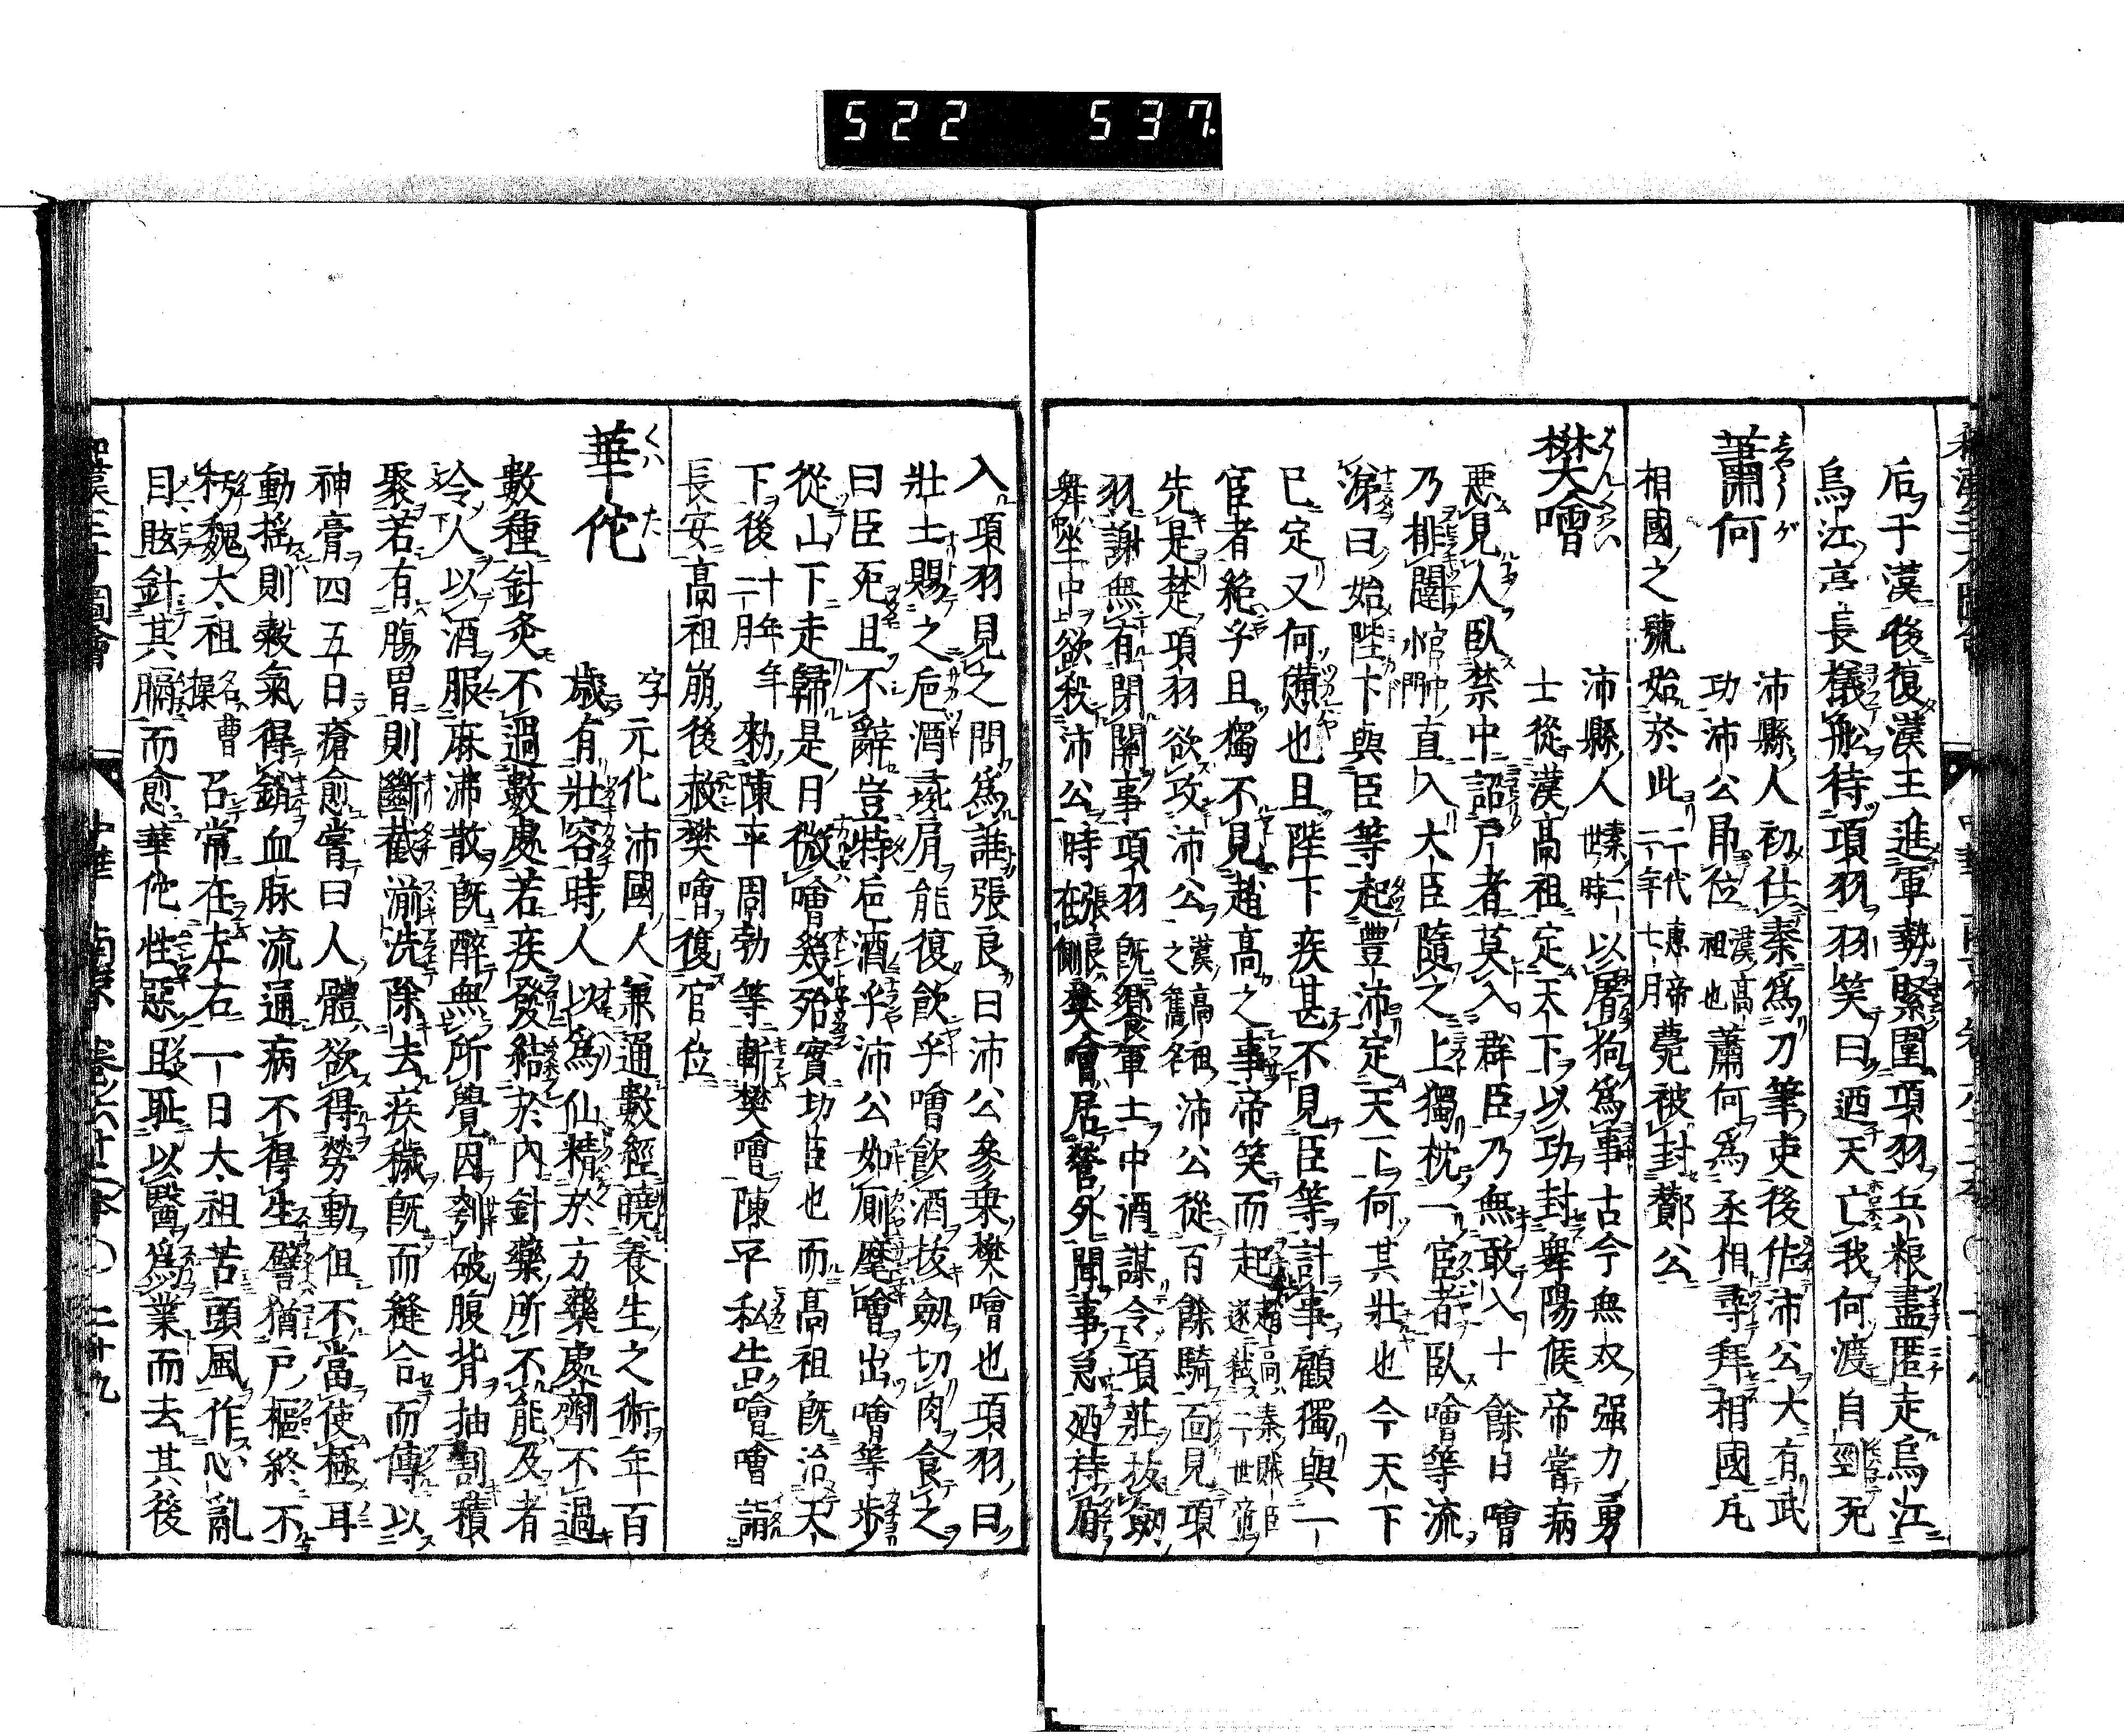 522 537
后于漢後復漢王進軍勢緊圍項羽兵粮盡匿走烏江
烏江亭長檥船待項羽羽笑曰迺天亡我何渡自頸死
蕭何 沛縣人初仕秦爲刀筆吏後佐沛公大有武
功沛公即位漢高祖也蕭何爲丞相尋拜相國凡
相國之號始於此二代惠帝二年七月薨被封酇公
樊噲 沛縣人秦二世時以屠狗爲事古今無双强力勇
士從漢高祖定天下以功封舞陽侯帝嘗病
悪見人臥禁中詔戸者莫入群臣乃無敢入十餘日噲
乃排闥帷中門直入大臣隨之上獨枕一宦者臥噲等流
涕曰始陛下與臣等起豐沛定天下何其壯也今天下
已定又何憊也且陛下疾甚不見臣等計事顧獨與一
宦者絶乎且獨不見趙高之事帝笑而起趙高秦賊臣遂弑二世帝
先是楚項羽欲攻沛公漢高祖之舊名沛公從百餘騎面見項
羽謝無有閉關事項羽既饗軍士中酒謀令項莊拔劔
舞坐中欲殺沛公時張良在側樊噲居營外聞事急廼持盾
入項羽見之問爲誰張良曰沛公參乗樊噲也項羽曰
壯士賜之巵酒彘肩能復飮乎噲飮酒抜劔切肉食之
曰臣死且不辭豈特巵酒乎沛公如厠麾噲出噲等歩
從山下走歸是日微噲幾殆實功臣也而高祖既治天
下後十二年年月勅陳平周勃等斬樊噲陳平私告噲噲詣
長安高祖崩後赦樊噲復官位
華佗 字元化沛國人兼通數經曉養生之術年百
歳有壯容時人以爲仙精於方藥處劑不過
數種針灸不過數處若疾發結於内針藥所不能及者
令人以酒服麻沸散既醉無所覺因刳破腹背抽割積
聚若有膓胃則斷截湔洗除去疾穢既而縫合而傅以
神膏四五日瘡愈嘗曰人體欲得勞動但不當使極耳
動揺則穀氣得銷血脉流通病不得生譬猶戸樞終不
朽魏大祖名曹操召常在左右一日大祖苦頭風作心亂
目眩針其膈而愈華佗性惡且耻以醫爲業而去其後